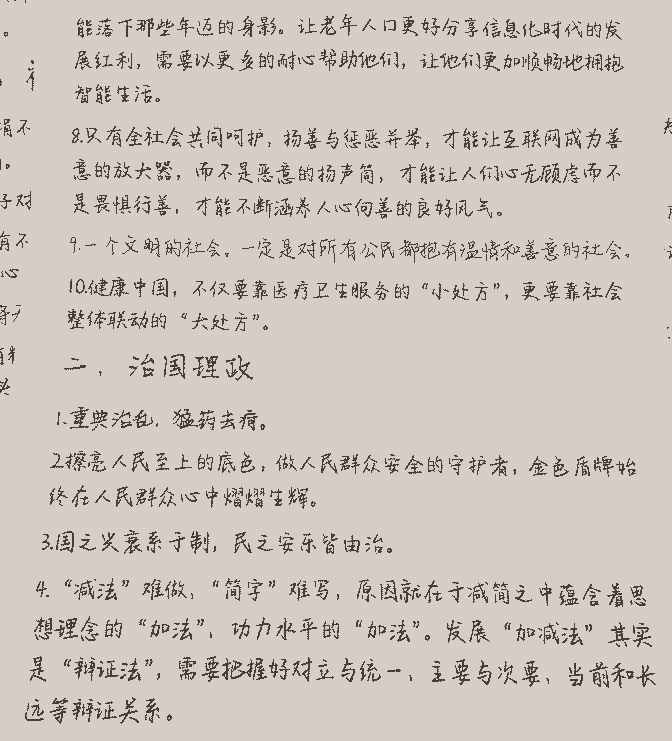 能落下那些年迈的身影。让老年人口更好分享信息化时代的发
展红利，需要以更多的耐心帮助他们，让他们更加顺畅地拥抱
智能生活。
8.只有全社会共同呵护，扬善与惩恶并举，才能让互联网成为善
意的放大器，而不是恶意的扬声筒，才能让人们心无顾虑而不
是畏惧行善，才能不断涵养人心向善的良好风气。
9.一个文明的社会，一定是对所有公民都抱有温情和善意的社会。
10.健康中国，不仅要靠医疗卫生服务的“小处方”，更要靠社会
整体联动的“大处方”。
二、治国理政
1.重典治乱，猛药去疴。
2.擦亮人民至上的底色，做人民群众安全的守护者，金色盾牌始
终在人民群众心中熠熠生辉。
3.国之兴衰系于制，民之安乐皆由治。
4.“减法”难做，“简字”难写，原因就在于减简之中蕴含着思
想理念的“加法”、功力水平的“加法”。发展“加减法”其实
是“辩证法”，需要把握好对立与统一、主要与次要、当前和长
远等辩证关系。